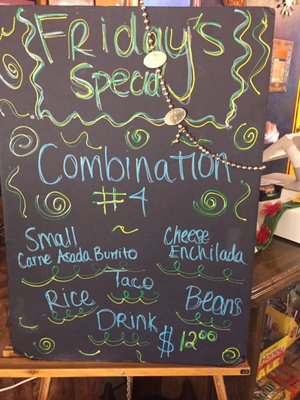 FRiday's
Special
Combination
#4
Small Carne Asada Burrito
Cheese Enchilada
Taco
Rice
Beans
DRINK $12.00